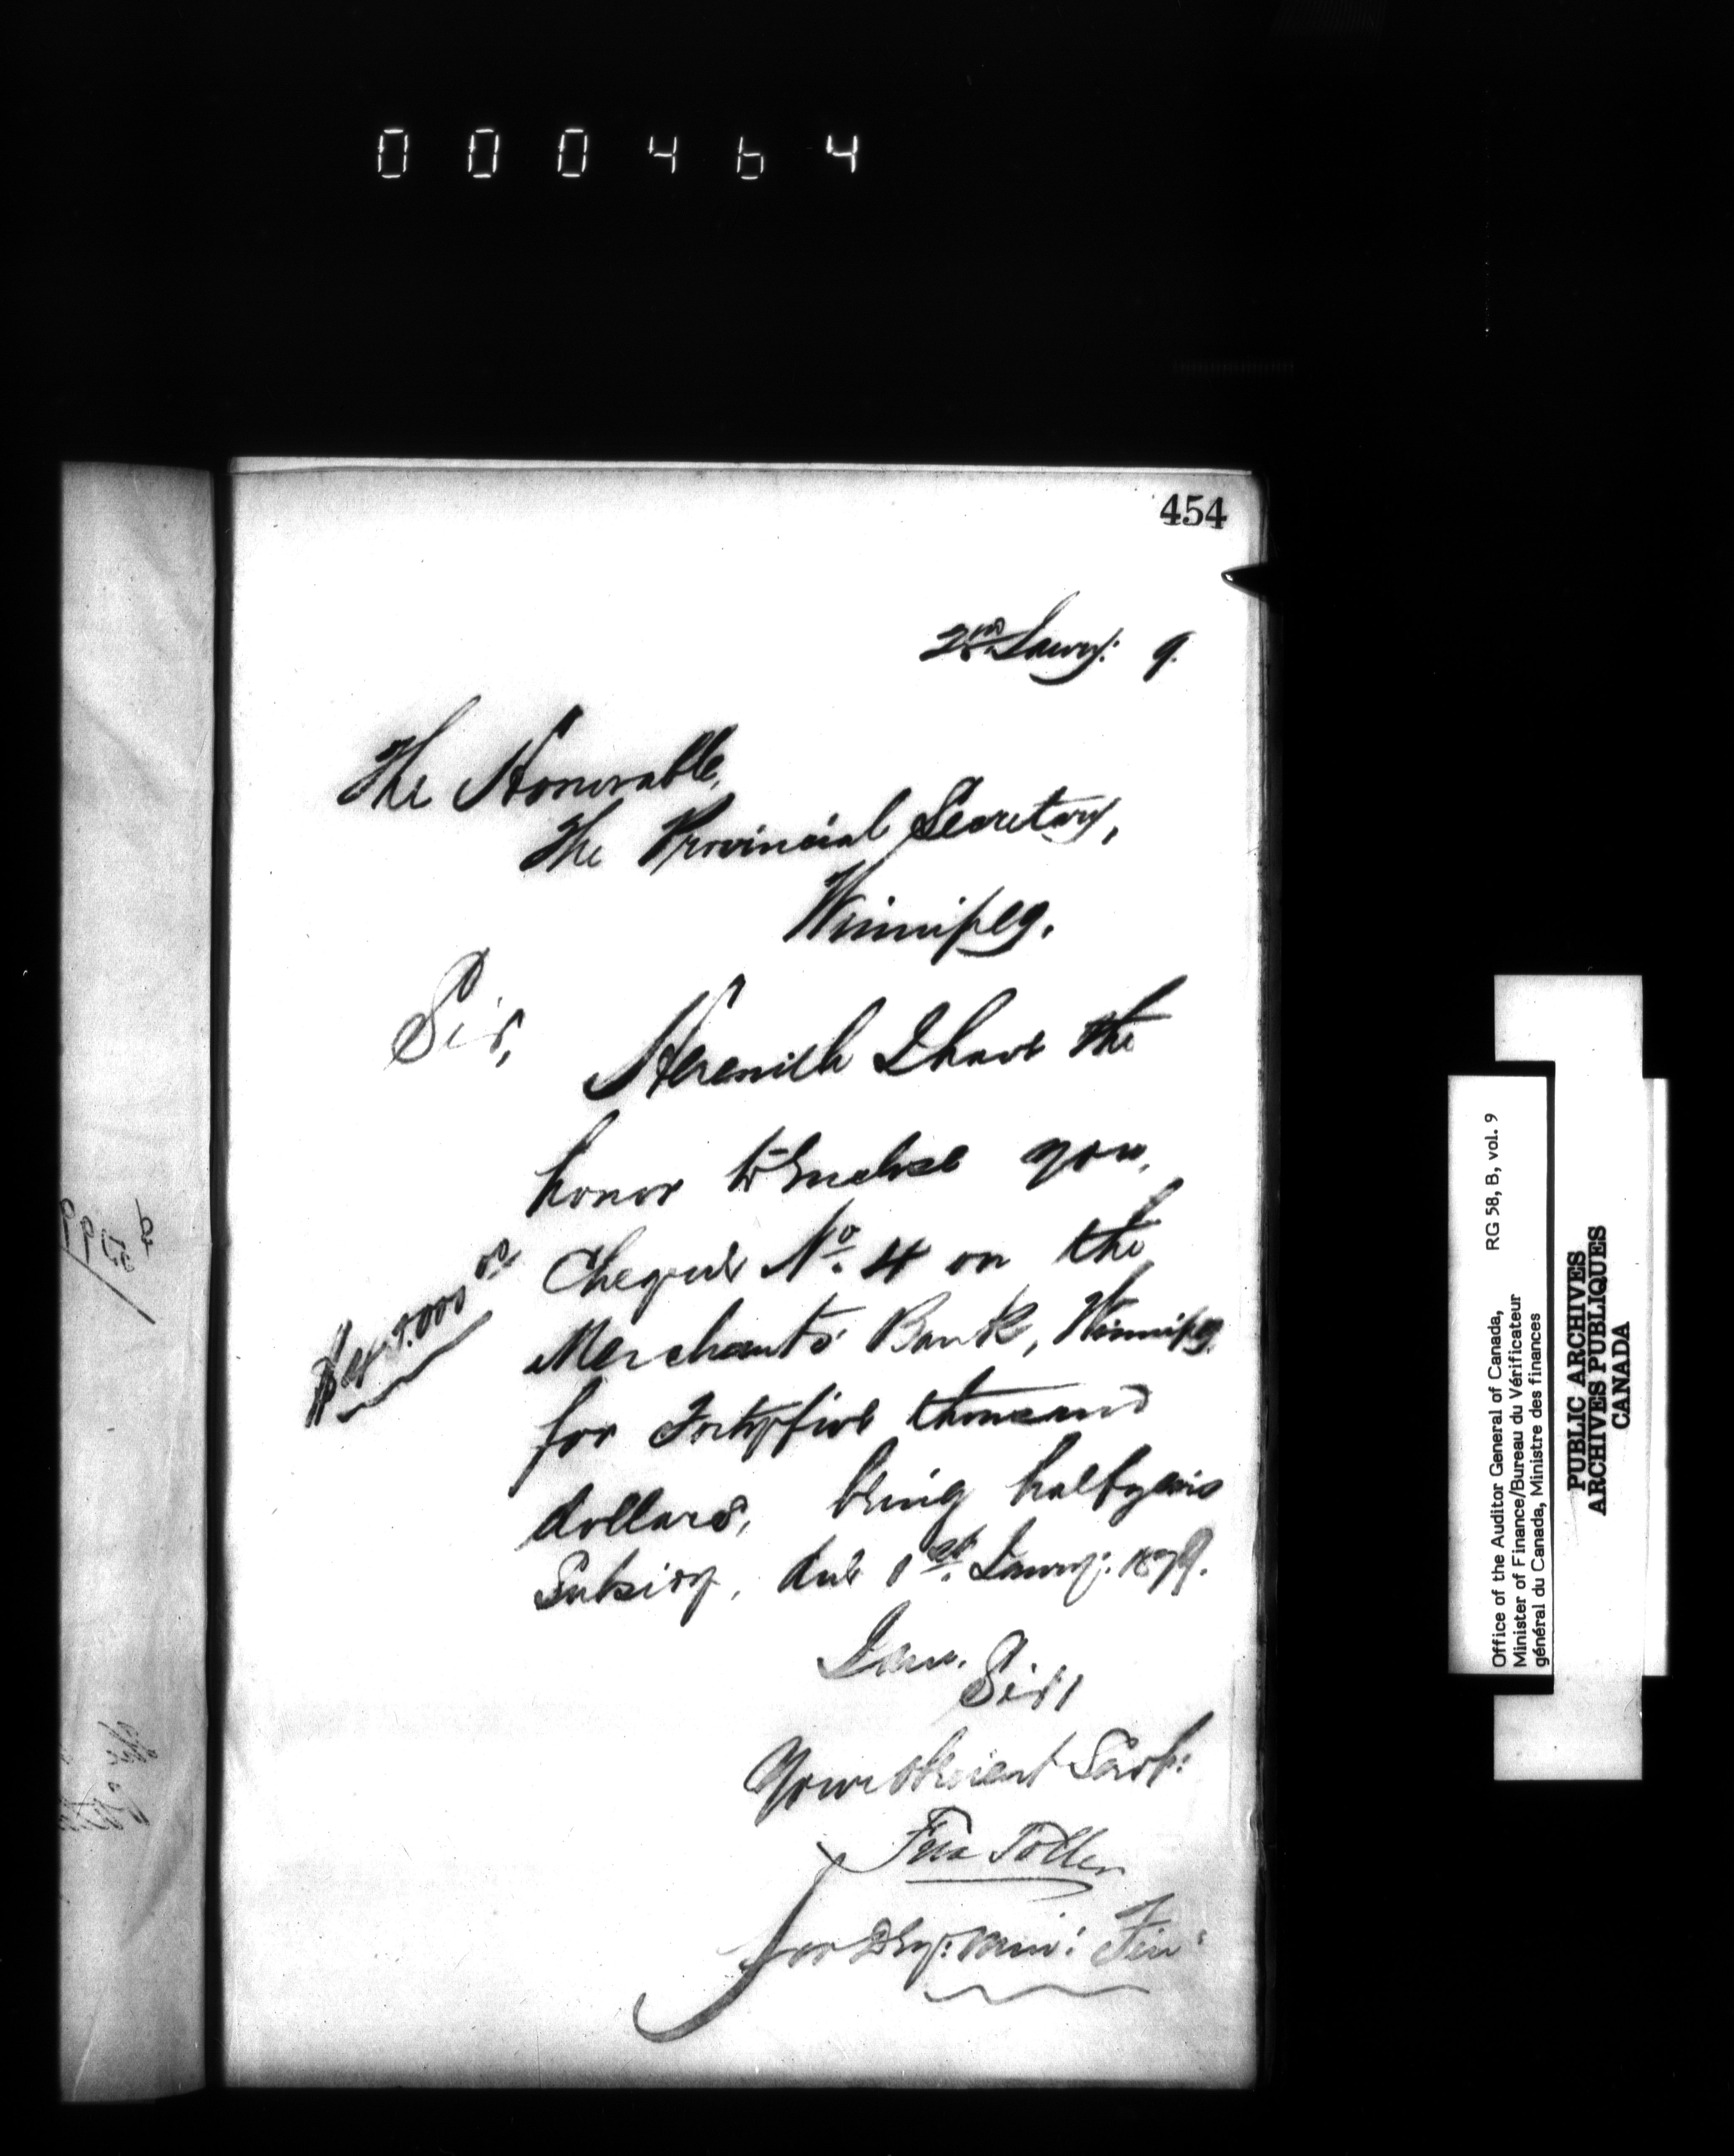 000464
454
2nd Jany: 9.
The Honorable,
The Provincial Secretary,
Winnipeg.
Sir,
Herewith I have the
honor to Enclose you,
Cheque No. 4 on the
$45.000 00
Merchants' Bank, Winnipeg
for Fortyfive thousand
dollars, being half years
Subsidy, due 1st. Jany: 1879.
I am,
Sir,
Your obedient Servt:
Fred Toller
for Dep: Min: Fin:
Office of the Auditor General of Canada,
Minister of Finance/Bureau du Vérificateur
général du Canada, Ministre des finances
RG 58, B, vol. 9
PUBLIC ARCHIVES
ARCHIVES PUBLIQUES
CANADA